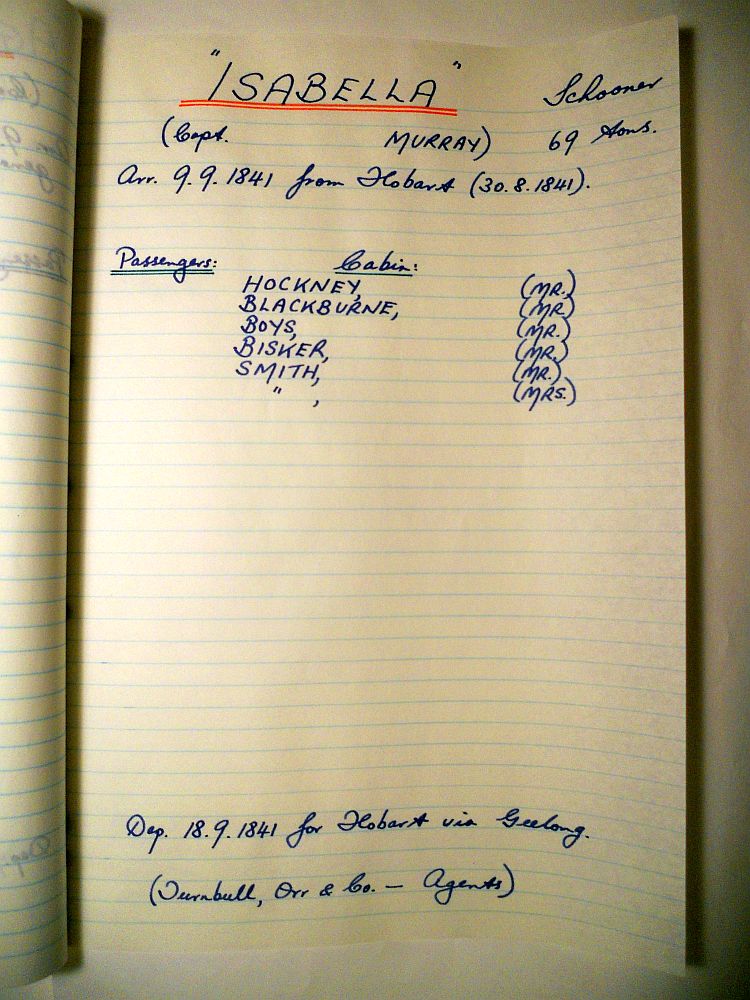 "ISABELLA" Schooner
(Capt. MURRAY) 69 tons.
Arr. 9.9.1841 from Hobart (30.8.1841).
Passengers: Cabin:
HOCKNEY, (MR.)
BLACKBURNE, (MR.)
BOYS, (MR.)
BISKER, (MR.)
SMITH, (MR.)
" , (MRS.)
Dep. 18.9.1841 for Hobart via Geelong.
(Turnbull, Orr & Co. — Agents)